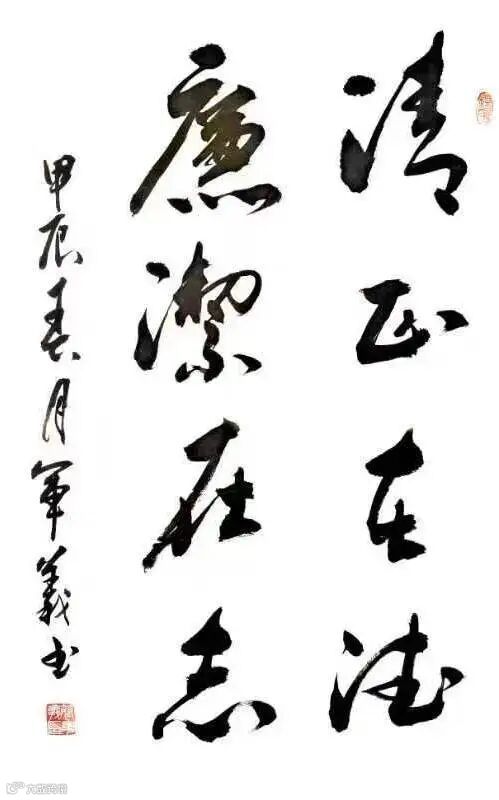 清正在德
廉潔在志
甲辰春月軍義书